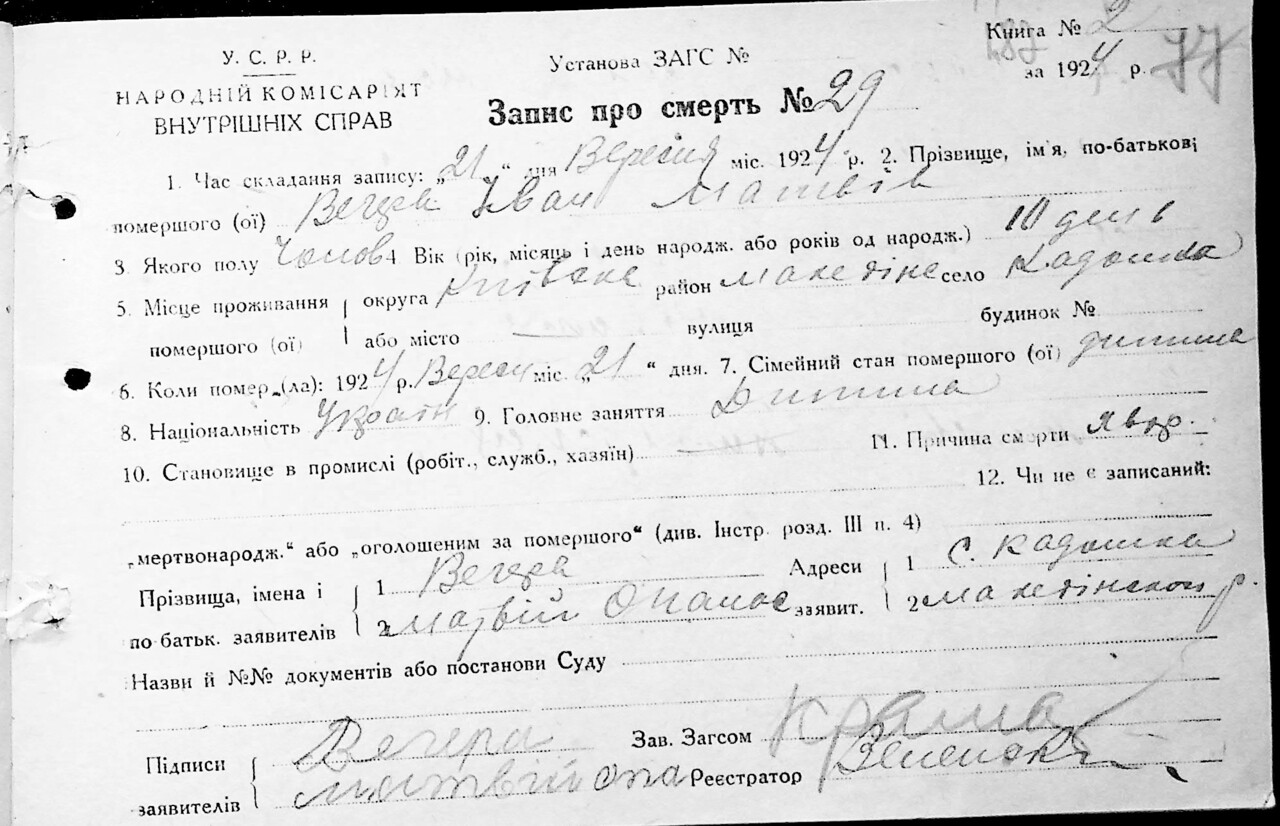 Книга № 2
У. С. Р. Р.
Установа ЗАГС №
за 1924 р. 77
НАРОДНІЙ КОМІСАРІЯТ
ВНУТРІШНІХ СПРАВ
Запис про смерть № 29
1. Час складання запису: „21„ дня Вересня міс. 1924 р. 2. Прізвище, ім'я, по-батькові
помершого (ої) Вечера Іван Матвів
3. Якого полу Чолов 4 Вік (рік, місяць і день народж. або років од народж.) 10 день
5. Місце проживання округа Київська район Македінс село Кадомка
помершого (ої) або місто вулиця будинок №
6. Коли помер„(ла): 1924 р. Вересн міс. „21“ дня. 7. Сімейний стан помершого (ої) дитина
8. Національність Україн 9. Головне заняття Дитина
10. Становище в промислі (робіт., служб., хазяїн) 11. Причина смерти
12. Чи не є записаний:
„мертвонародж.“ або „оголошеним за помершого“ (див. Інстр. розд. III п. 4)
Прізвища, імена і 1 Вечера Адреси 1 с. Кадомка
по батьк. заявителів 2 Матвій Опанас заявит. 2 Македінского р.
Назви й №№ документів або постанови Суду
Підписи Вечера Зав. Загсом
заявителів Матвій Опа Реєстратор